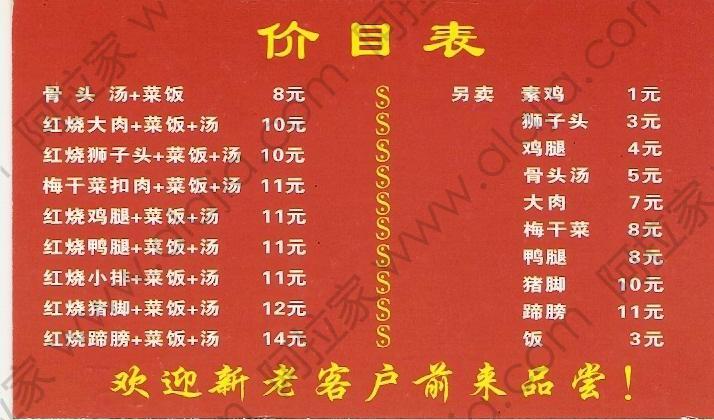 价目表
骨头汤+菜饭 8元
红烧大肉+菜饭+汤 10元
红烧狮子头+菜饭+汤 10元
梅干菜扣肉+菜饭+汤 11元
红烧鸡腿+菜饭+汤 11元
红烧鸭腿+菜饭+汤 11元
红烧小排+菜饭+汤 11元
红烧猪脚+菜饭+汤 12元
红烧蹄膀+菜饭+汤 14元
S
S
S
S
S
S
S
S
S
S
另卖 素鸡 1元
狮子头 3元
鸡腿 4元
骨头汤 5元
大肉 7元
梅干菜 8元
鸭腿 8元
猪脚 10元
蹄膀 11元
饭 3元
欢迎新老客户前来品尝！
阿拉家 www.alajia.com